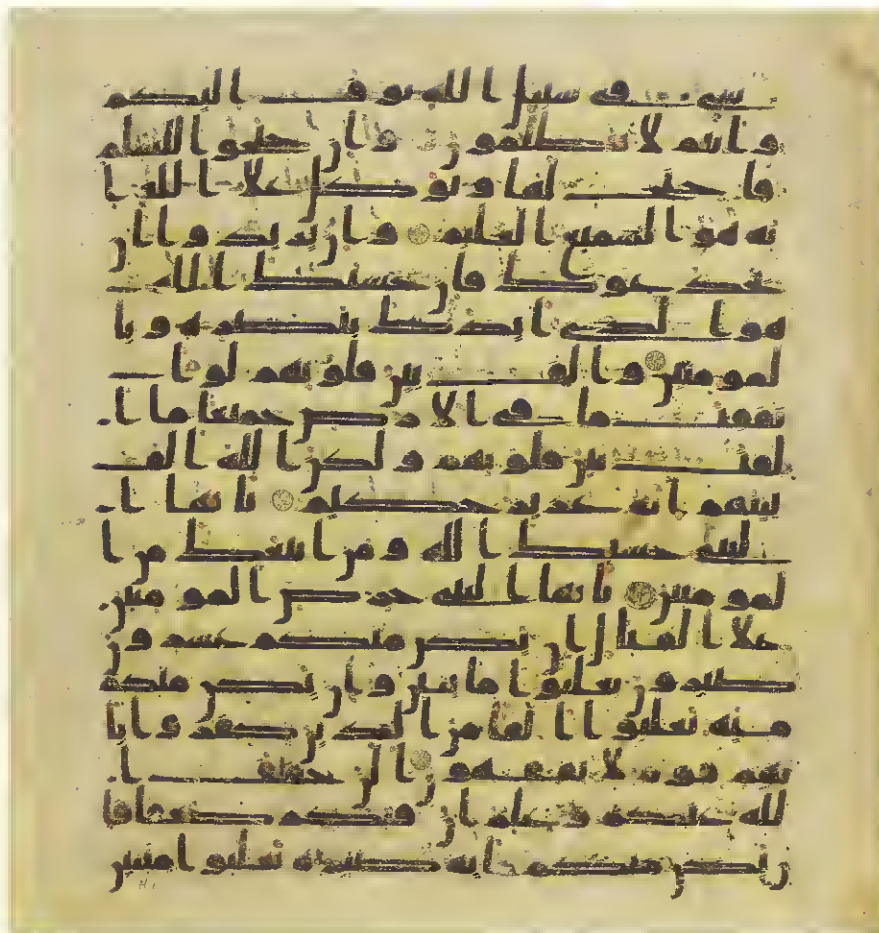 شى فى سبيل الله يوف اليكم
وانتم لا تظلمون وان جنحوا للسلم
فاجنح لها وتوكل علا الله ا
نه هو السميع العليم وان يريدوا ان
يخدعوك فان حسبك الله
هو الذى ايدك بنصره وبا
لمومنين والف بين قلوبهم لو ا
نفقت ما فى الارض جميعا ما ا
لفت بين قلوبهم ولكن الله الف
بينهم انه عزيز حكيم يايها ا
لنبى حسبك الله ومن اتبعك من ا
لمومنين يايها النبى حرض المومنين
علا القتال ان يكن منكم عشرون
صبرون يغلبوا مايتين وان يكن منكم
مايه يغلبوا الفا من الذين كفروا با
نهم قوم لا يفقهون الن خفف ا
لله عنكم وعلم ان فيكم ضعفا فا
ن يكن منكم مايه صبره يغلبوا مايتين